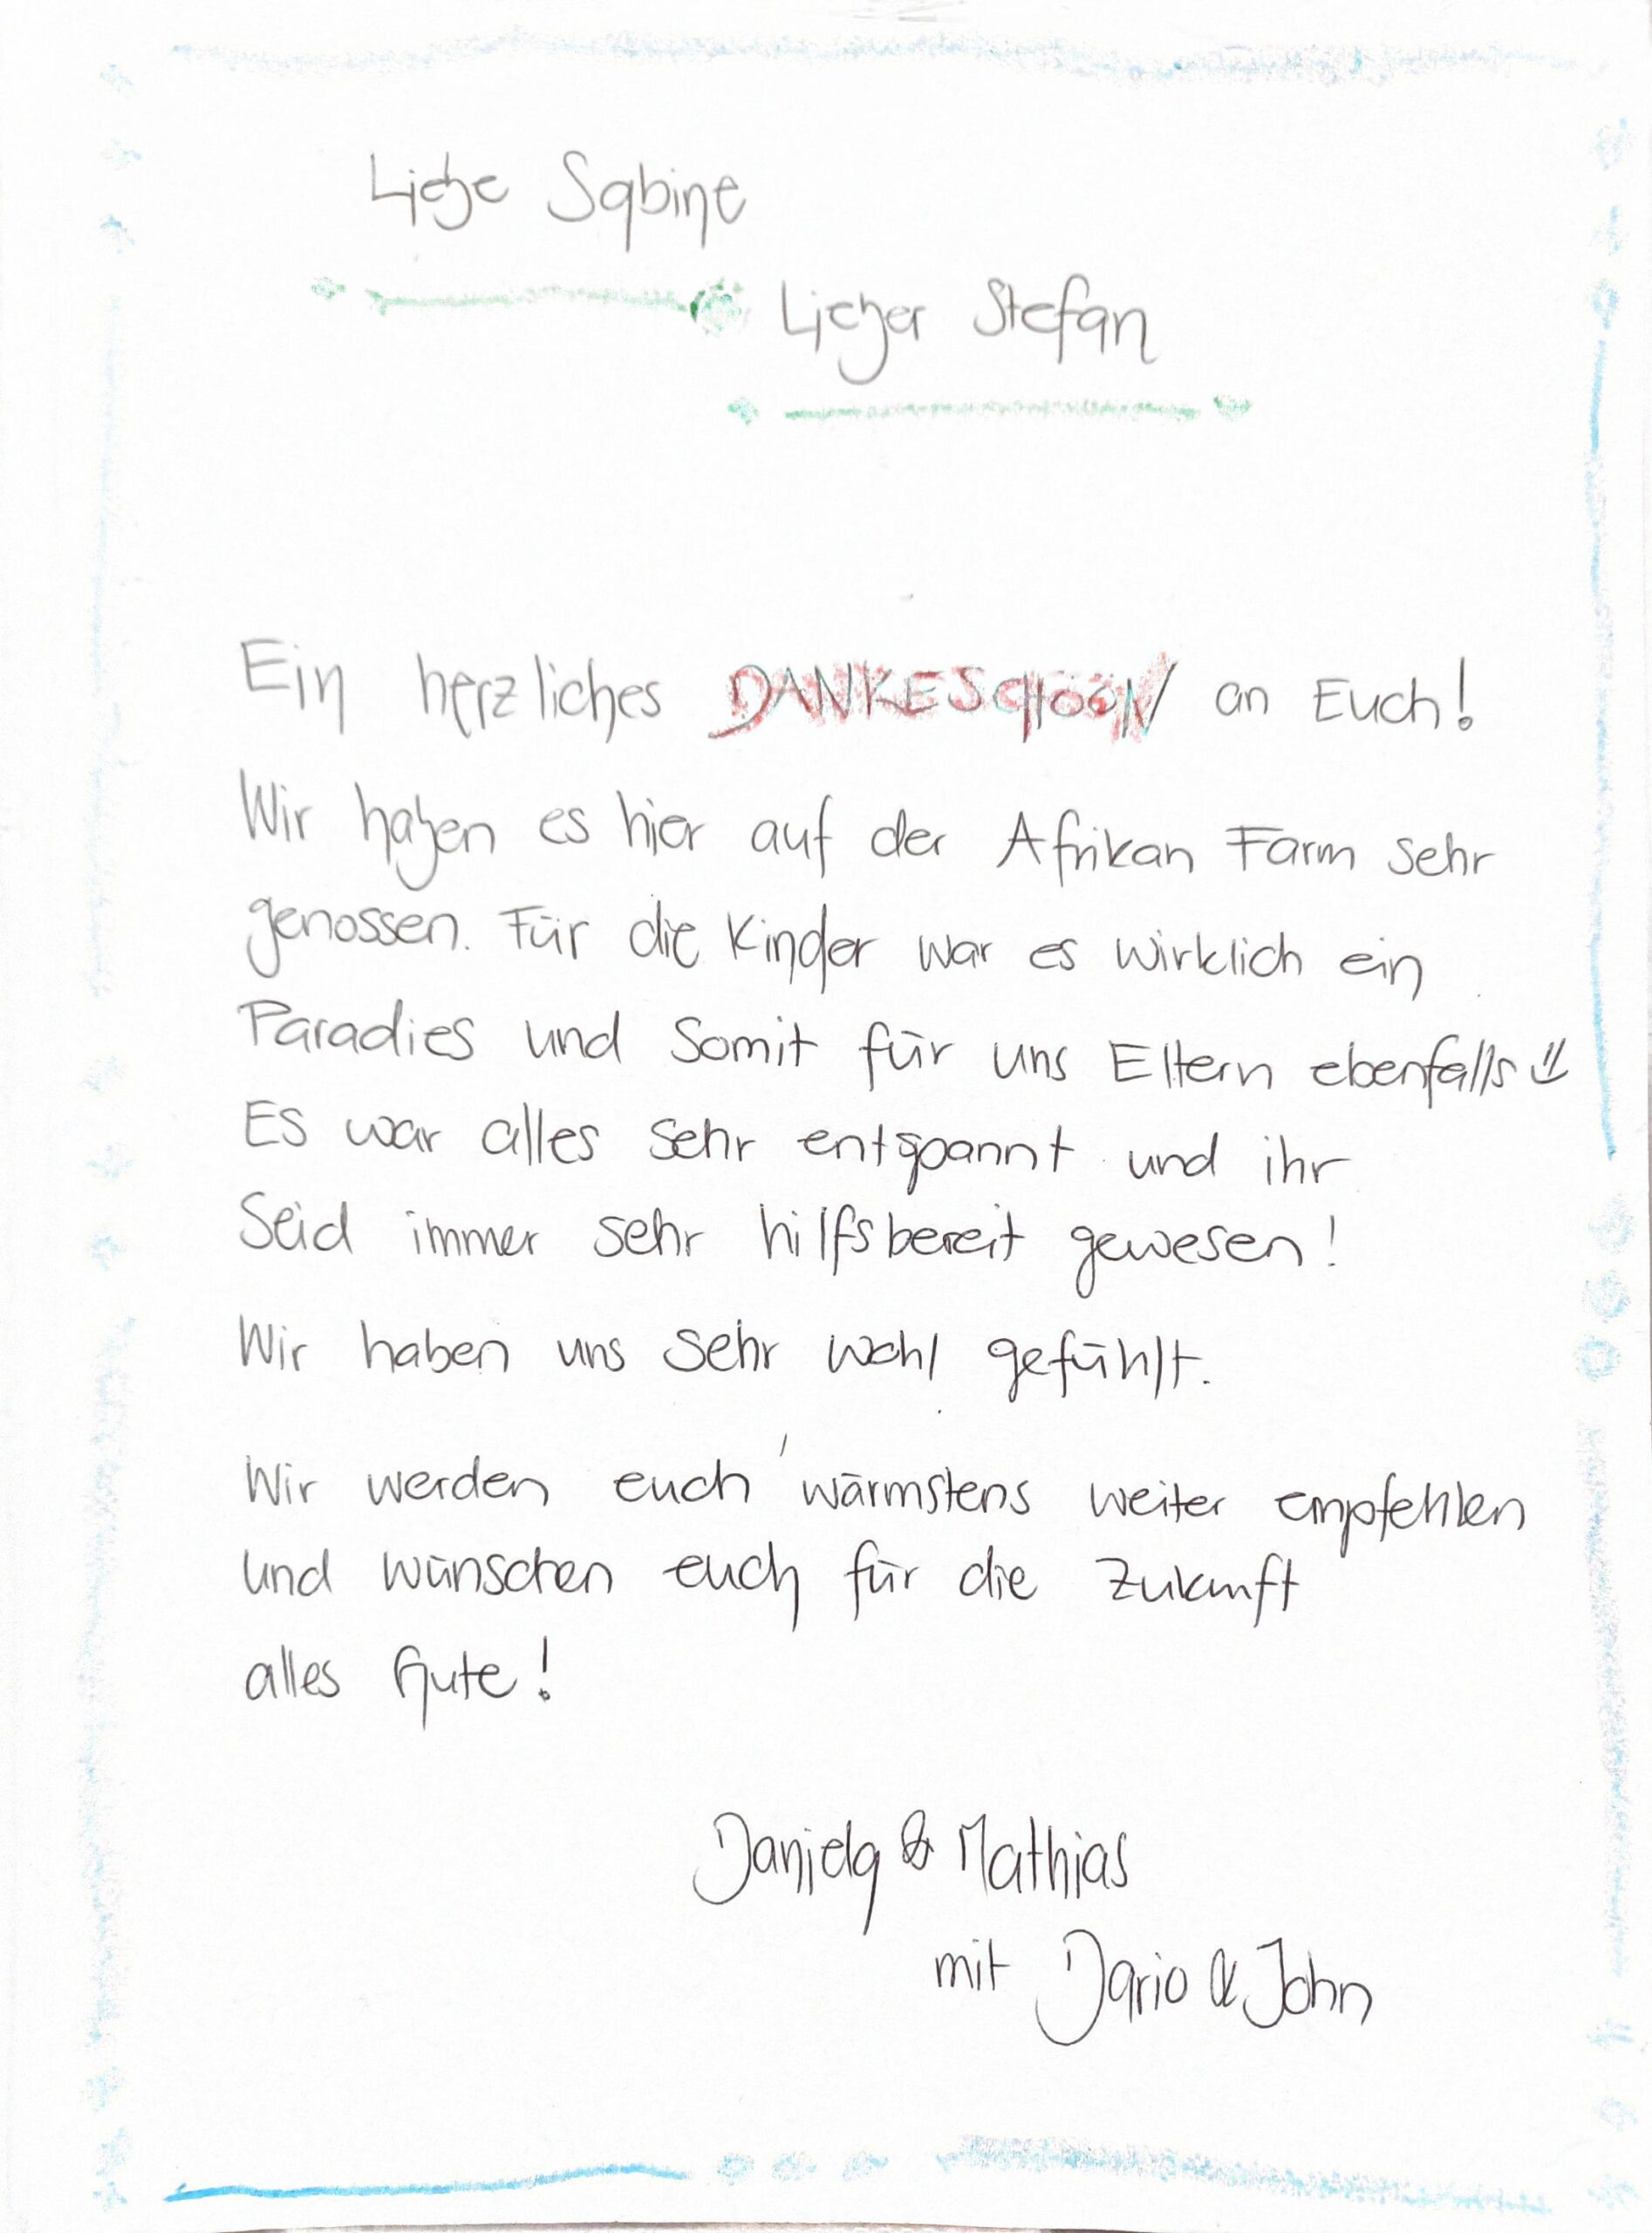 Liebe Sabine
Lieber Stefan
Ein herzliches DANKESCHÖÖN an Euch!
Wir haben es hier auf der Afrikan Farm sehr
genossen. Für die Kinder war es wirklich ein
Paradies und somit für uns Eltern ebenfalls
Es war alles sehr entspannt und ihr
seid immer sehr hilfsbereit gewesen!
Wir haben uns sehr wohl gefühlt.
Wir werden euch wärmstens weiter empfehlen
und wünschen euch für die Zukunft
alles Gute!
Daniela & Mathias
mit Dario & John